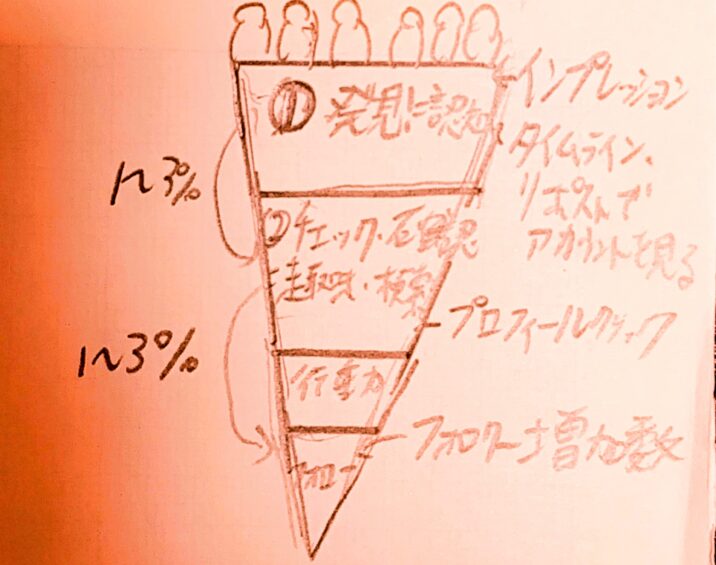 インプレッション
① 発見に認知
タイムライン、
リポストで
アカウントを見る
1〜3%
②チェック・確認
興味・検索
プロフィールクリック
1〜3%
行動
フォロワー増加数
フォロー